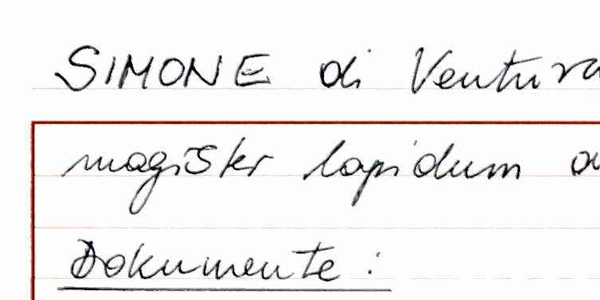 SIMONE di Ventura
magister lapidum
Dokumente: